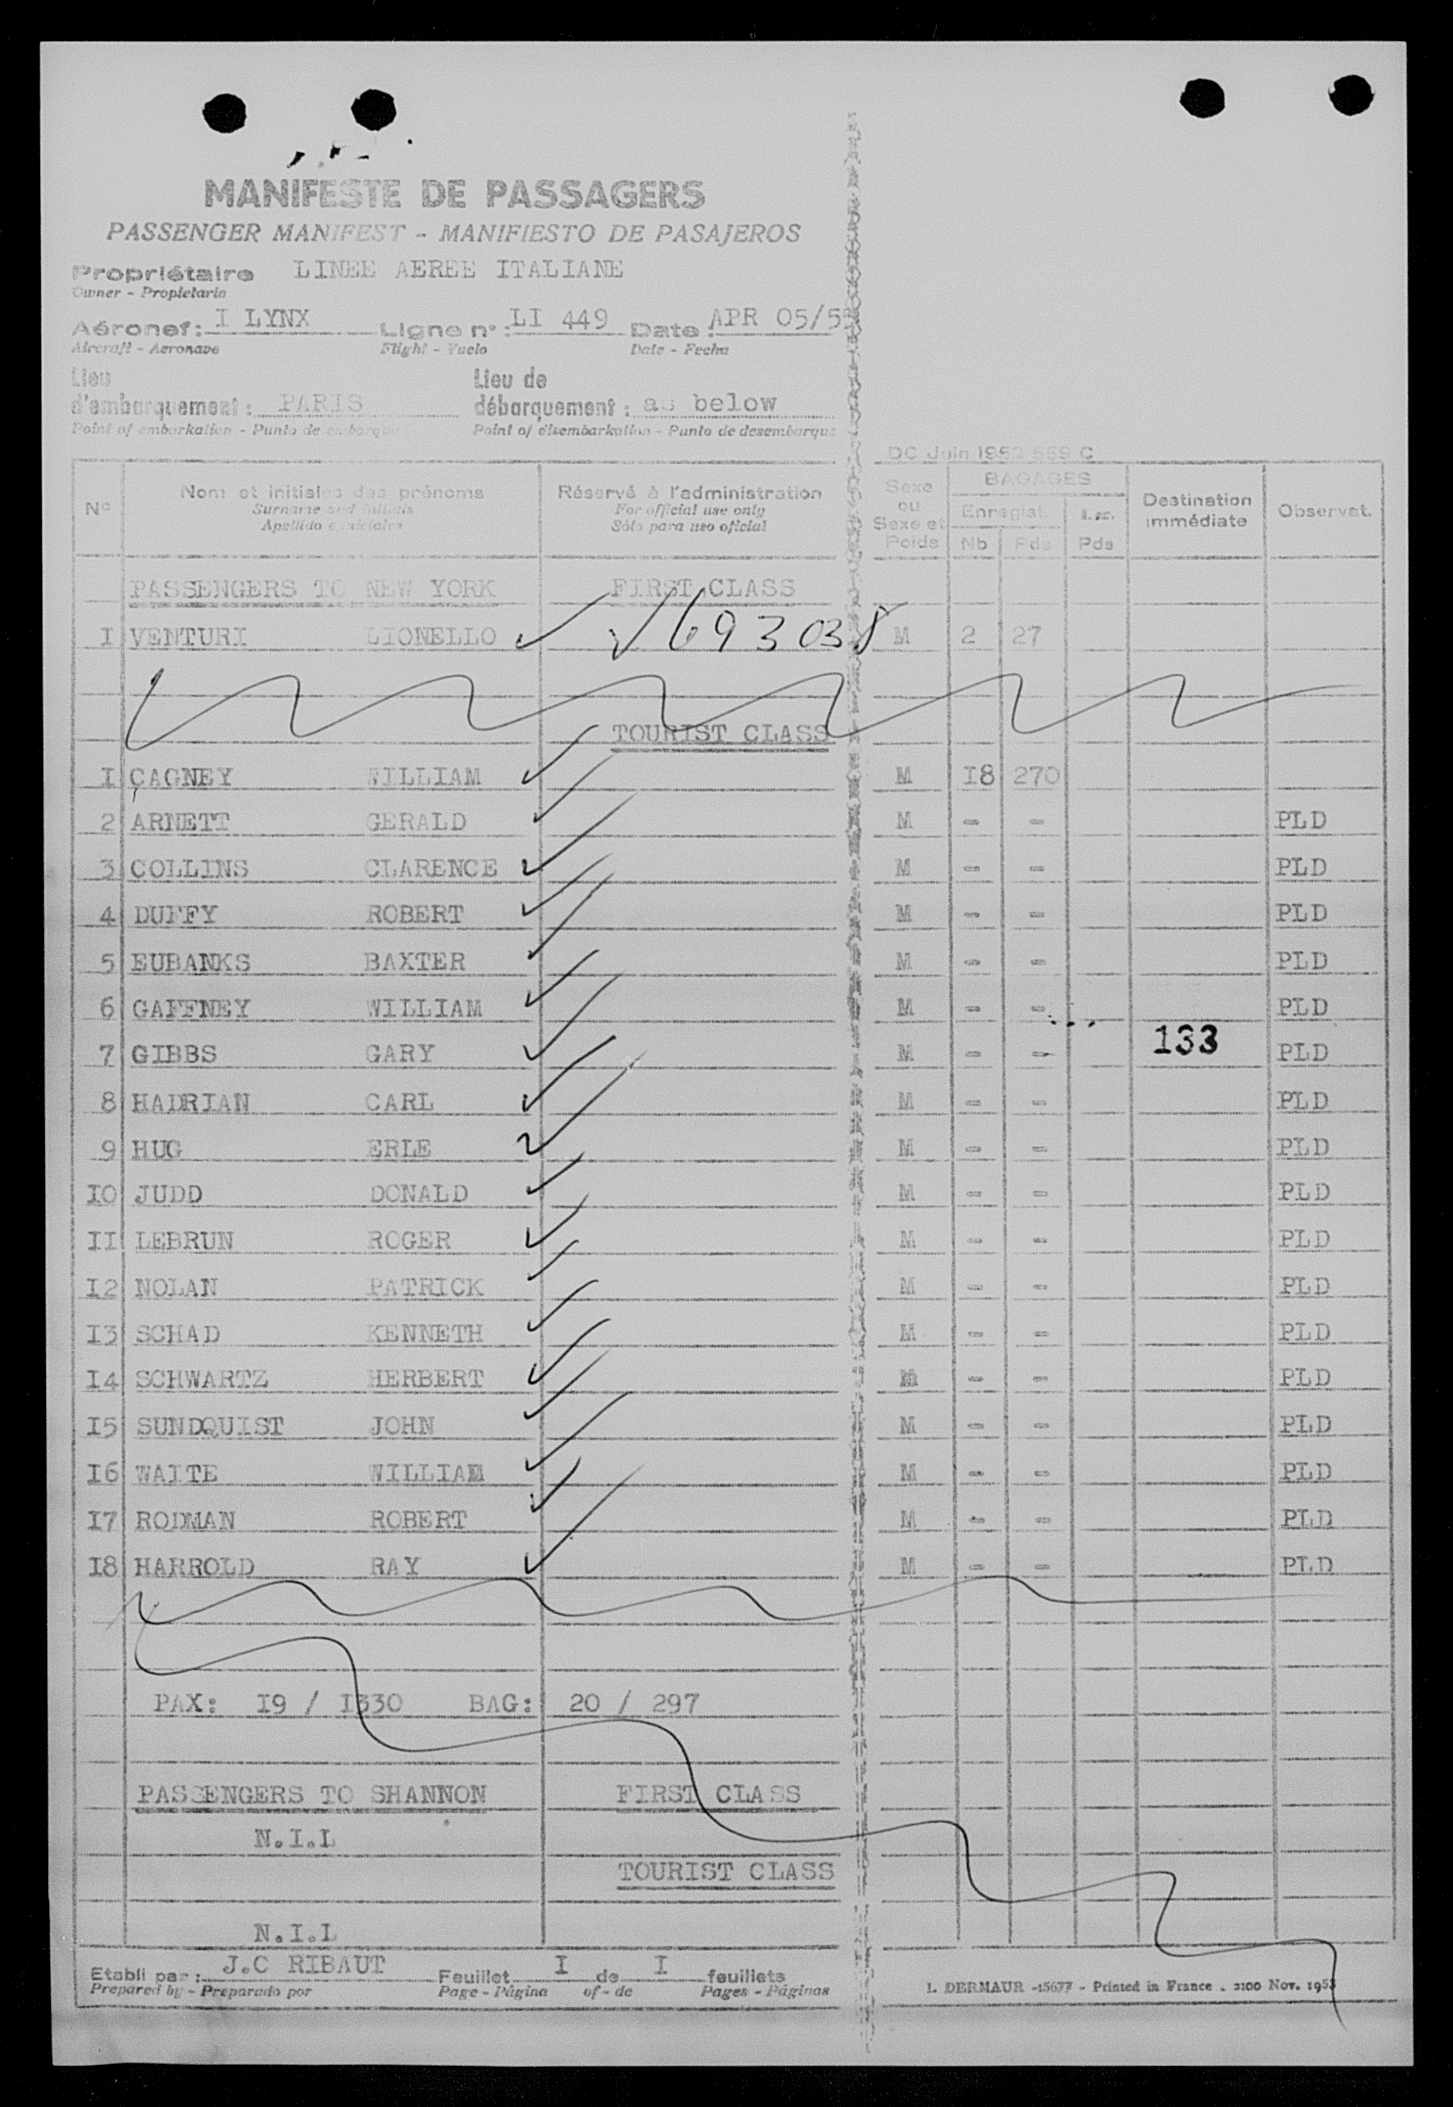 MANIFESTE DE PASSAGERS
PASSENGER MANIFEST - MANIFIESTO DE PASAJEROS
Propriétaire LINEE AEREE ITALIANE
Owner - Propietario
Aéronef: I LYNX Ligne n°: LI 449 Date: APR 05/5
Aircraft - Aeronave Flight - Vuelo Date - Fecha
Lieu d'embarquement: PARIS Lieu de débarquement: as below
Point of embarkation - Punto de embarque Point of disembarkation - Punto de desembarque
DC Juin 1952 569 C
N° Nom et initiales des prénoms Réservé à l'administration Sexe ou Sexe et Poids BAGAGES Enregist. Nb Pds Pds Destination immédiate Observat.
Surname and initials For official use only
Apellido e iniciales Sólo para uso oficial
PASSENGERS TO NEW YORK FIRST CLASS
I VENTURI LIONELLO 693038 M 2 27
TOURIST CLASS
I CAGNEY WILLIAM M I8 270
2 ARNETT GERALD M - - PLD
3 COLLINS CLARENCE M - - PLD
4 DUFFY ROBERT M - - PLD
5 EUBANKS BAXTER M - - PLD
6 GAFFNEY WILLIAM M - - PLD
133
7 GIBBS GARY M - - PLD
8 HADRIAN CARL M - - PLD
9 HUG ERLE M - - PLD
IO JUDD DONALD M - - PLD
II LEBRUN ROGER M - - PLD
I2 NOLAN PATRICK M - - PLD
I3 SCHAD KENNETH M - - PLD
I4 SCHWARTZ HERBERT M - - PLD
I5 SUNDQUIST JOHN M - - PLD
I6 WAITE WILLIAM M - - PLD
I7 RODMAN ROBERT M - - PLD
I8 HARROLD RAY M - - PLD
PAX: I9 / I330 BAG: 20 / 297
PASSENGERS TO SHANNON FIRST CLASS
N.I.L
TOURIST CLASS
N.I.L
Etabli par: J.C RIBAUT Feuillet I de I feuillets
Prepared by - Preparado por Page - Página of - de Pages - Páginas
I. DERMAUR -15677 - Printed in France . 2100 Nov. 1953